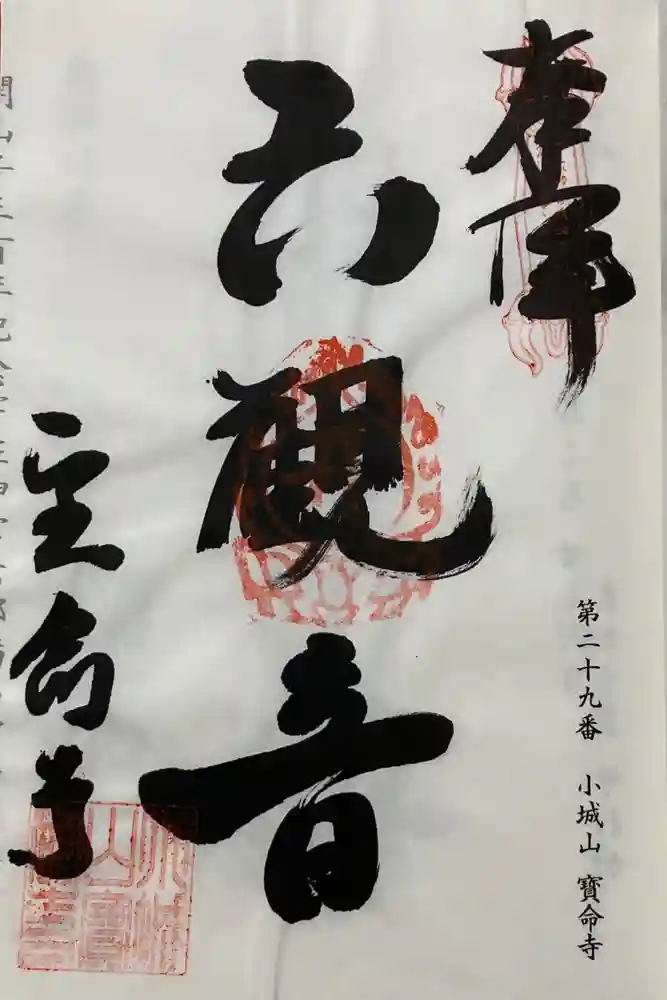 奉拝
第二十九番　小城山　寶命寺
六観音
宝命寺